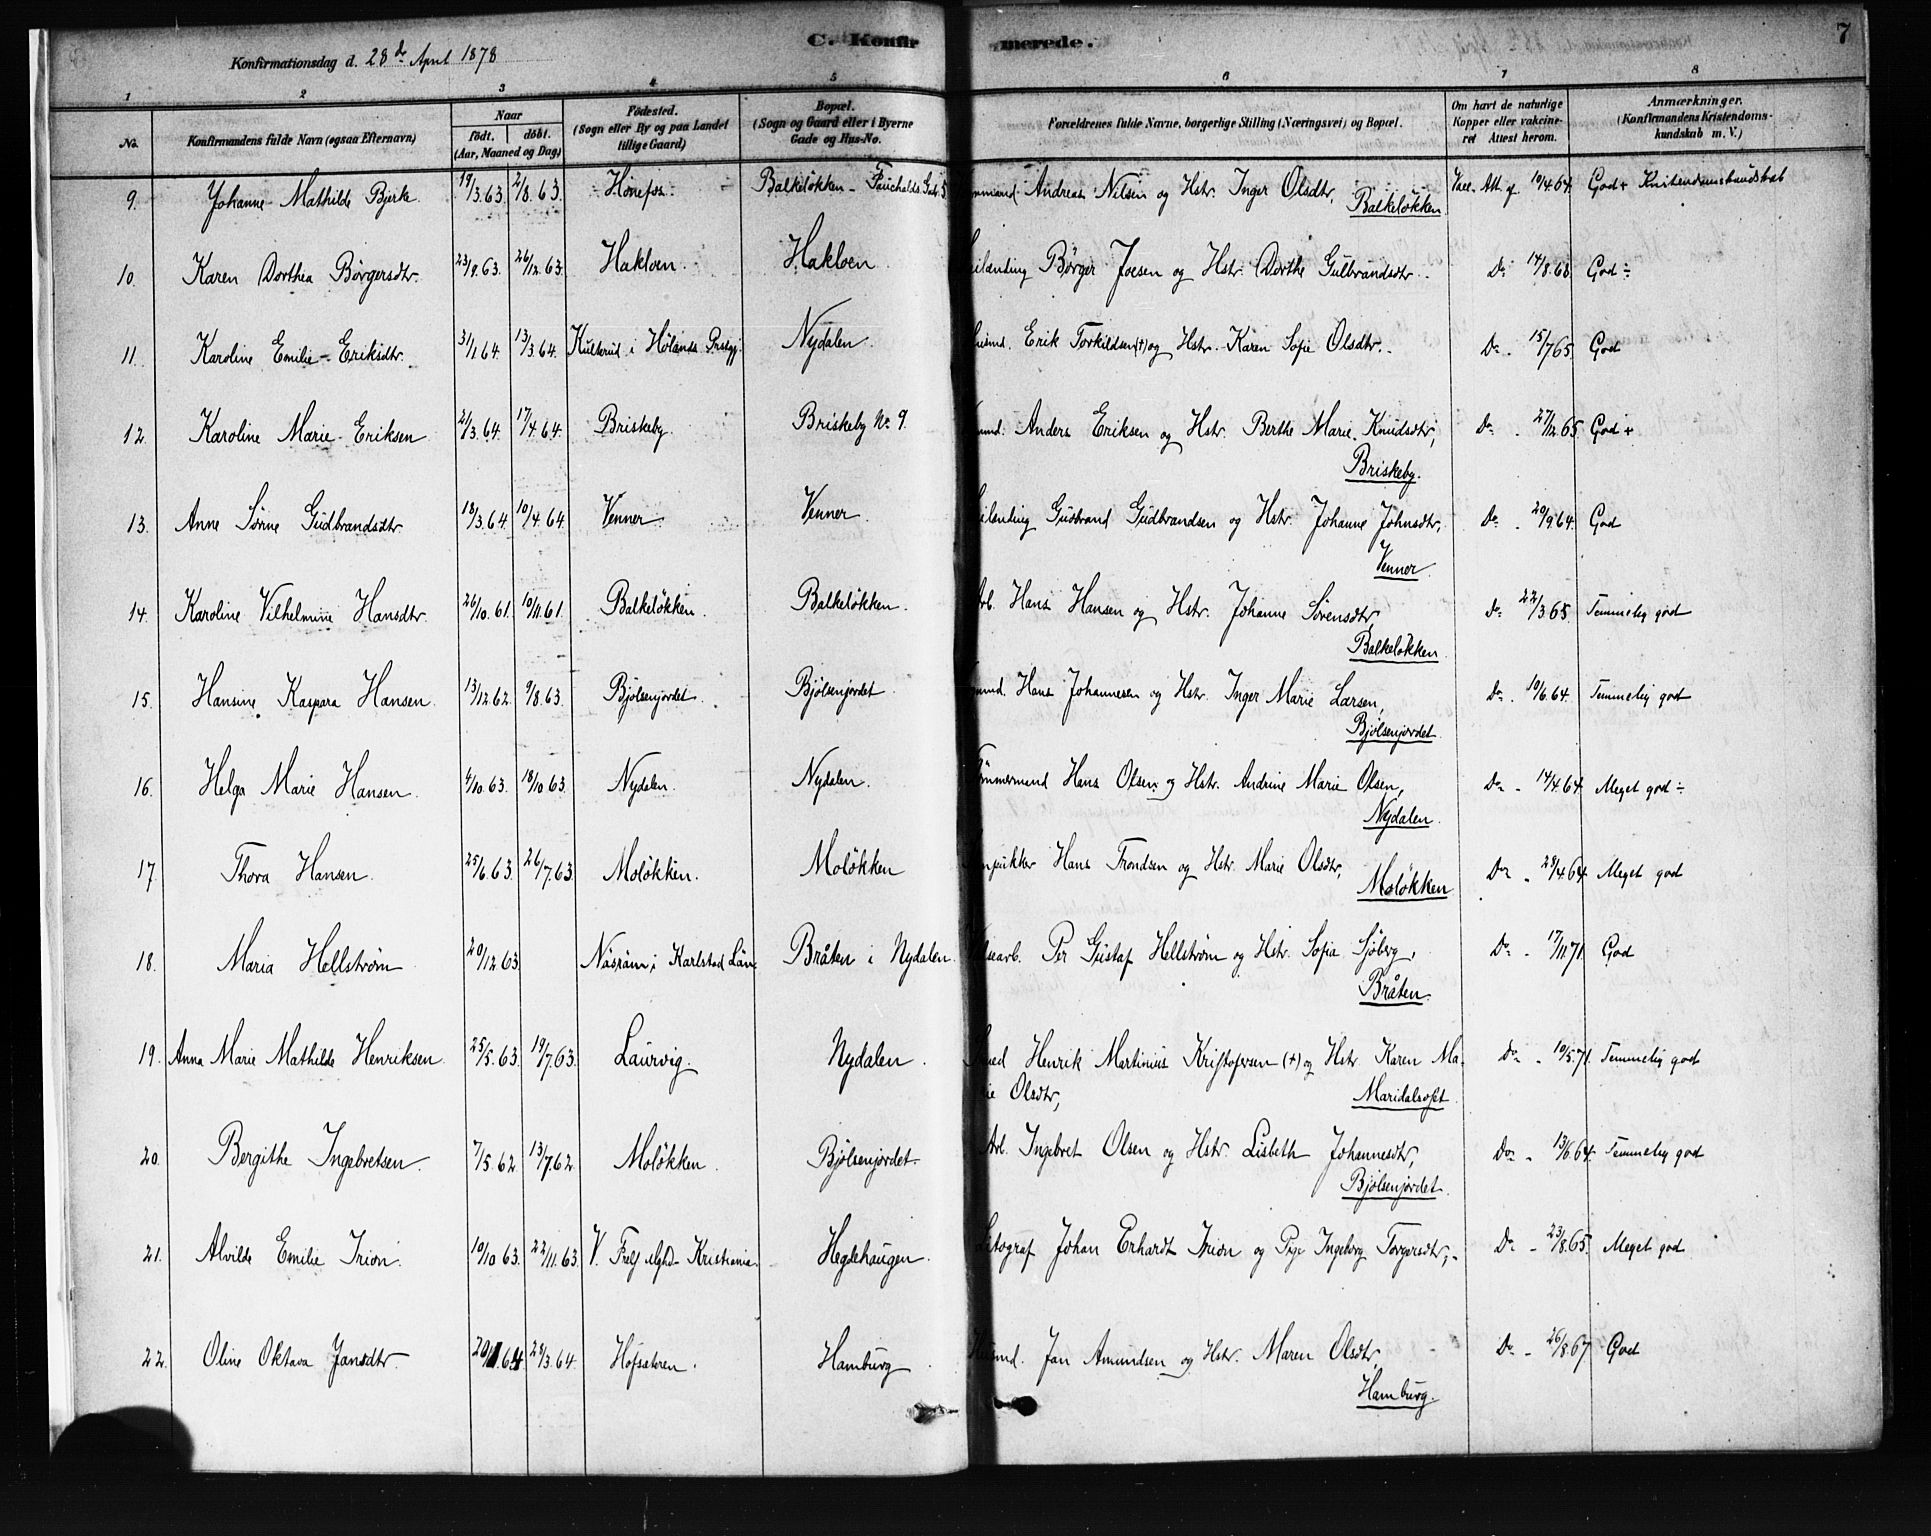 Konfirmationsdag d. 28de April 1878
C. Konfirmerede.
7
1 2 3 4 5 6 7 8
No. Konfirmandens fulde Navn (ogsaa Efternavn) Naar født. døbt. (Aar, Maaned og Dag) Fødested. (Sogn eller By og paa Landet tillige Gaard) Bopæl. (Sogn og Gaard eller i Byerne Gade og Hus-No. Forældrenes fulde Navne, borgerlige Stilling (Næringsvei) og Bopæl. Om havt de naturlige Kopper eller vakcineret Attest herom. Anmærkninger. (Konfirmandens Kristendomskundskab m. V.)
9. Johanne Mathilde Bjerke 19/3.63. 2/8.63. Hønefos Balkeløkken - Fauchalds Gade 5 Andreas Nilsen og Hstr. Inger Olsdtr, Vacc. Att. af 10/4.64. God + Kristendomskundskab
Balkeløkken
10. Karen Dorthea Børgersdtr. 23/9.63. 26/12.63. Hakloen. Hakloen Børger Joesen og Hstr. Dorthe Gulbrandsdtr. Do 14/8.68 God ÷
11. Karoline Emilie Eriksdtr. 31/1.64. 13/3.64. Kulterud i Hølands Prstgj. Nydalen Erik Torkildsen (+) og Hstr. Karen Sofie Olsdtr. Do 15/7.65. God
12. Karoline Marie Eriksen 21/3.64. 17/4.64. Briskeby. Briskeby No 9. Anders Eriksen og Hstr. Berthe Marie Knudsdtr, Do 27/12.65. God +
Briskeby.
13. Anne Sørine Gudbrandsdtr 18/3.64. 10/4.64. Venner. Venner Gudbrand Gudbrandsen og Hstr. Johanne Johnsdtr, Do 20/9.64. God
Venner
14. Karoline Vilhelmine Hansdtr. 26/10.61. 10/11.61. Balkeløkken. Balkeløkken. Arb. Hans Hansen og Hstr. Johanne Sørensdtr, Do 22/3.65. Temmelig god
Balkeløkken
15. Hansine Kaspara Hansen. 13/12.62. 9/8.63. Bjølsenjordet. Bjølsenjordet Hans Johannesen og Hstr. Inger Marie Larsen, Do 10/6.64. Temmelig god
Bjølsenjordet
16. Helga Marie Hansen. 4/10.63. 18/10.63. Nydalen. Nydalen. Tømmermand Hans Olsen og Hstr. Andrine Marie Olsen, Do 14/4.64 Meget god ÷
Nydalen
17. Thora Hansen. 25/6.63. 26/7.63. Moløkken. Moløkken Hans Trondsen og Hstr. Marie Olsdtr, Do 28/4.64 Meget god
Moløkken
18. Maria Hellstrøm 20/12.63. i Karlstad Län Bråten i Nydalen. Per Gustaf Hellstrøm og Hstr. Sofia Sjøberg, Do 17/11.71. God
Bråten.
19. Anna Marie Mathilde Henriksen. 25/5.63. 19/7.63. Laurvig. Nydalen. Smed Henrik Martinius Kristofersen (+) og Hstr. Karen Ma- Do 10/5.71. Temmelig god
rie Olsdtr, Maridalsoset
20. Bergithe Ingebretsen. 7/5.62. 13/7.62. Moløkken. Bjølsenjordet. Arb. Ingebret Olsen og Hstr. Lisbeth Johannesdtr, Do 13/6.64. Temmelig god
Bjølsenjordet.
21. Alvilde Emilie Irion. 10/10.63. 22/11.63. V. Frels Mghd - Kristiania. Hegdehaugen. Litograf Johan Erhardt Irion og Pige Ingeborg Torgersdtr, - Do 23/8.65. Meget god
22. Oline Oktava Jansdtr. 28/3.64. Hofsæteren. Hamburg. Jan Amundsen og Hstr. Maren Olsdtr, Do 26/8.67 God
Hamburg.